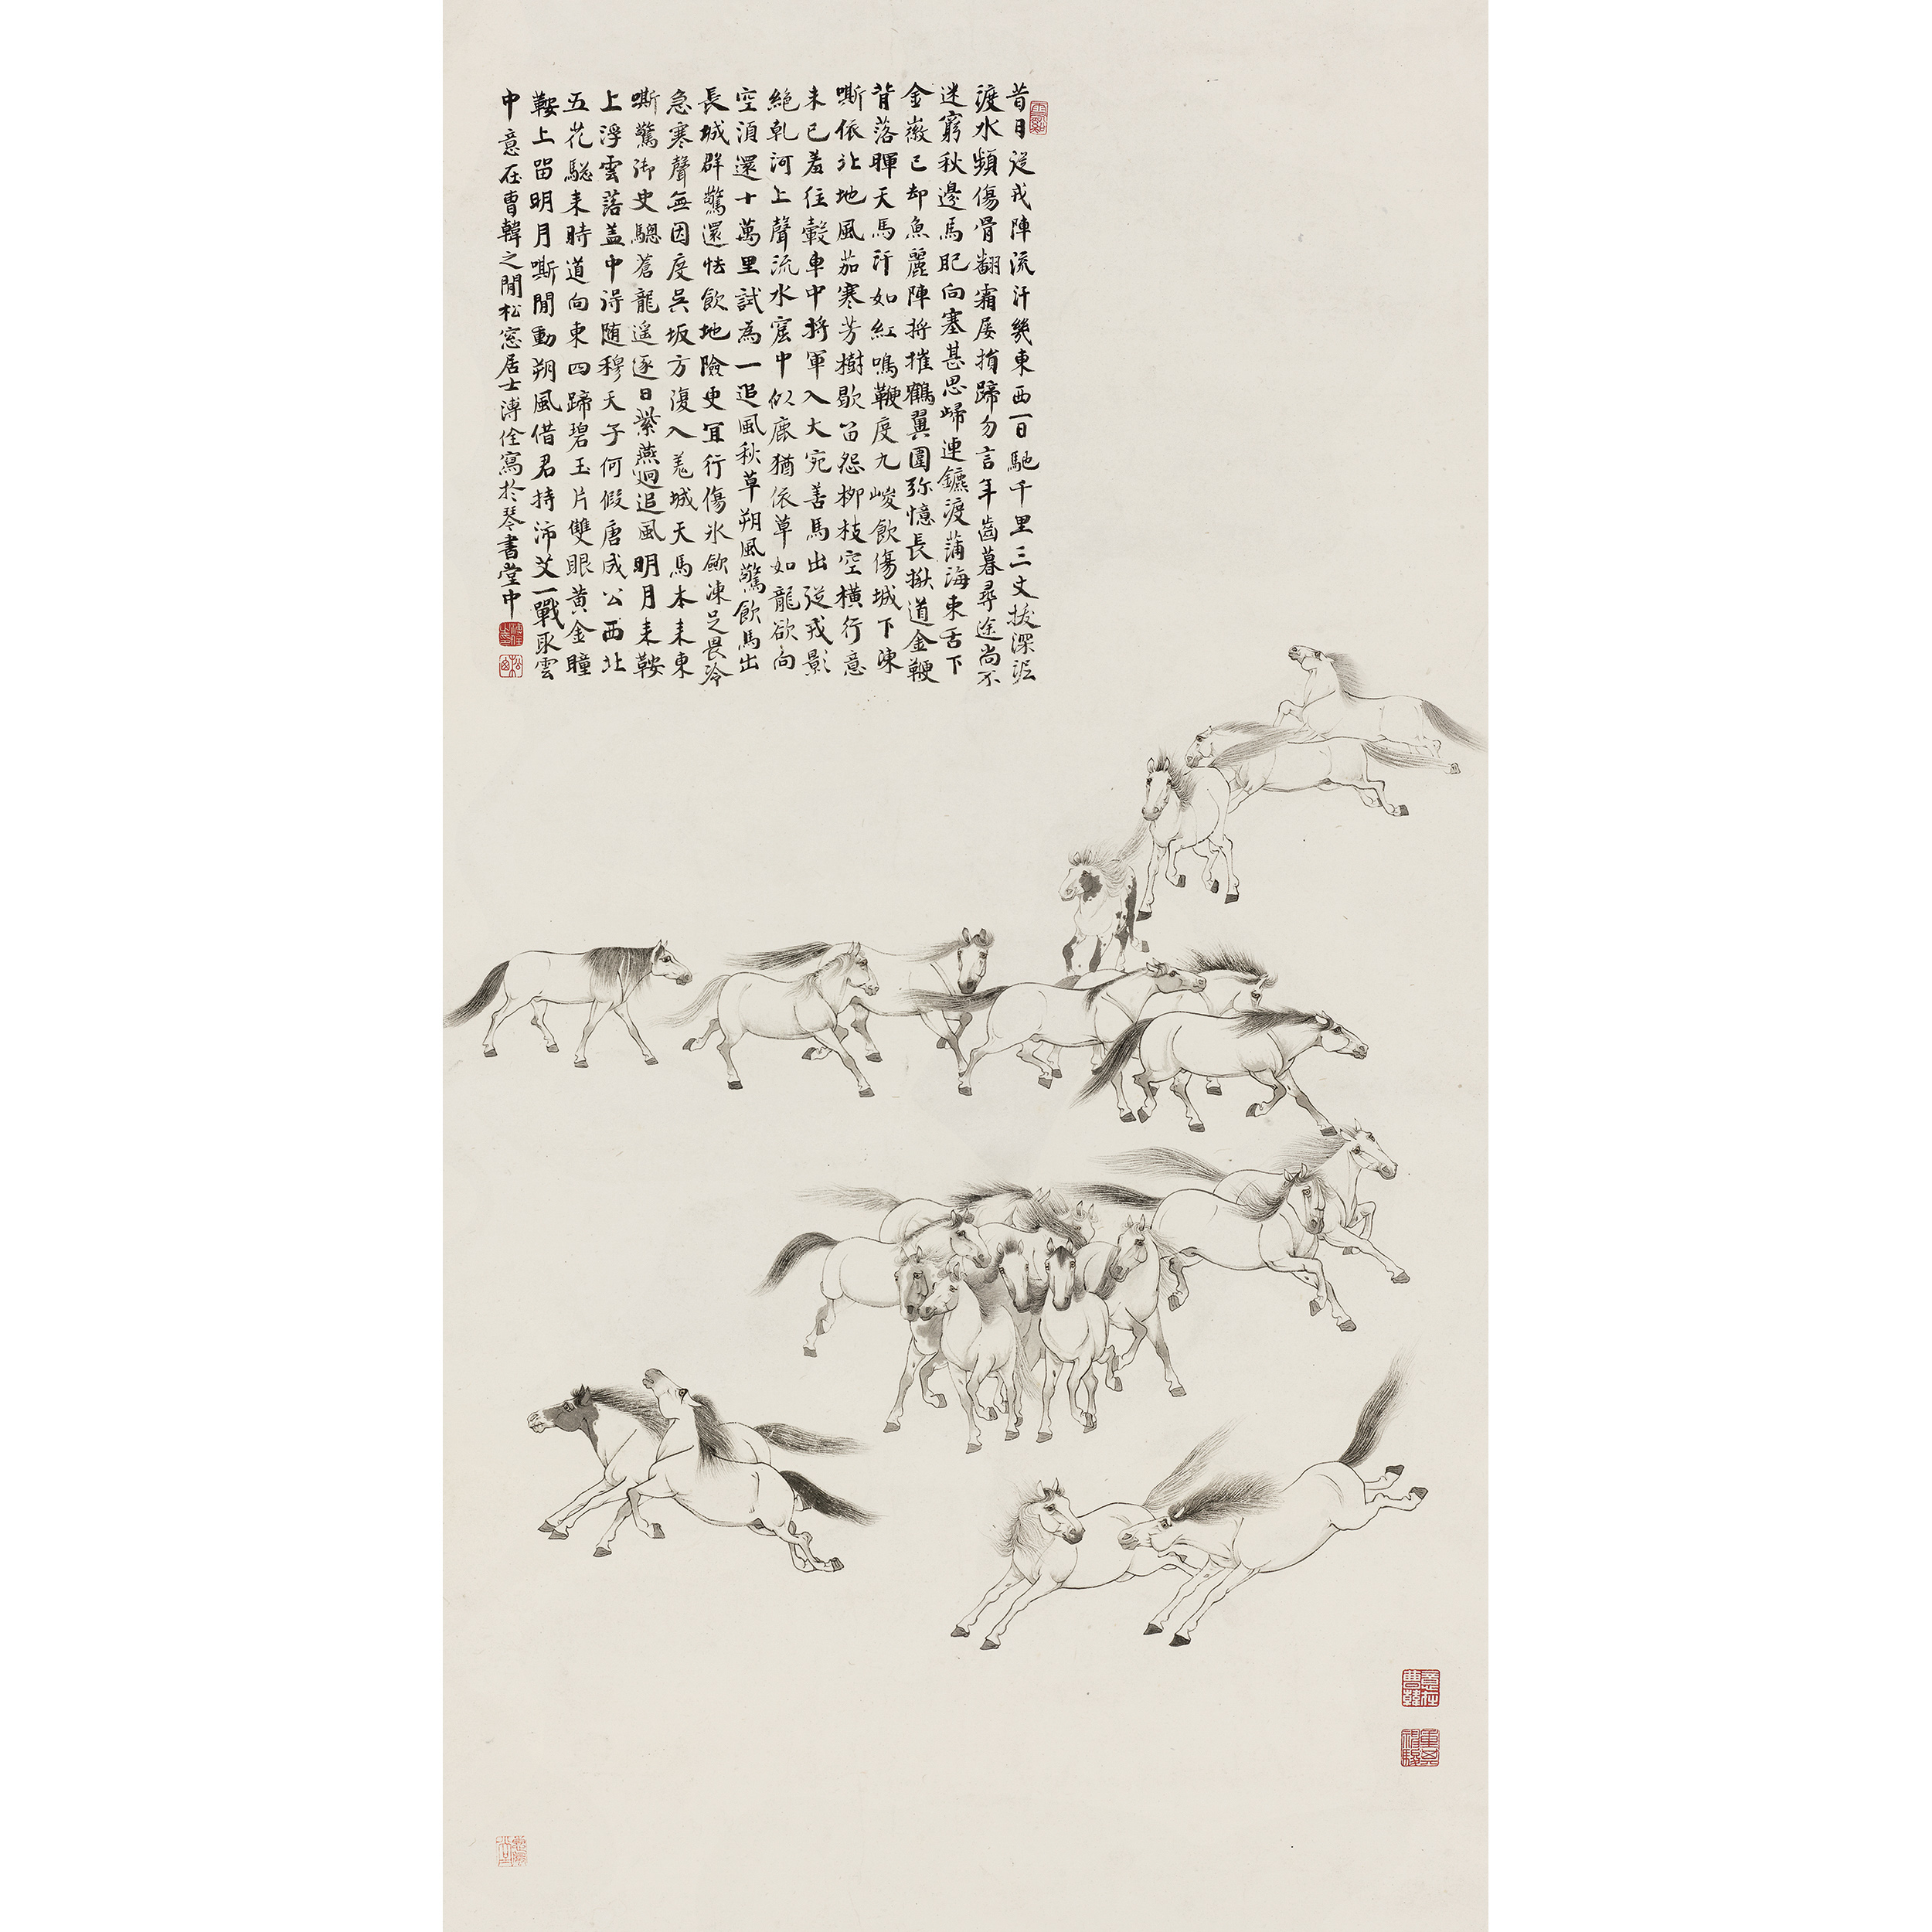 昔日從戎陣流汗幾東西一日馳千里三丈拔深泥
渡水頻傷骨翻霜屡損蹄勿言年齒暮尋途尚不
迷窮秋邊馬肥向塞甚思歸連鑣渡蒲海束舌下
金微已却魚麗陣將摧鶴翼圍弥憶長楸道金鞭
背落暉天馬汗如紅鳴鞭度九嵕飲傷城下凍
嘶依北地風笳寒芳樹歇笛怨柳枝空横行意
未已羞往轂車中將軍入大宛善馬出從戎影
絶乹河上聲流水窟中似鹿猶依草如龍欲向
空須還十萬里試為一追風秋草朔風驚飲馬出
長城群驚還怯飲地險更宜行傷氷歛凍足畏冷
急寒聲無因度吳坂方復入羌城天馬本來東
嘶驚御史驄蒼龍遥逐日紫燕迥追風明月來鞍
上浮雲落盖中得随穆天子何假唐成公西北
五花驄来時道向東四蹄碧玉片雙眼黄金瞳
鞍上留明月嘶閒動朔風借君持沛艾一戰取雲
中意在曹韓之閒松窓居士溥佺寫於琴書堂中
意在曹韓